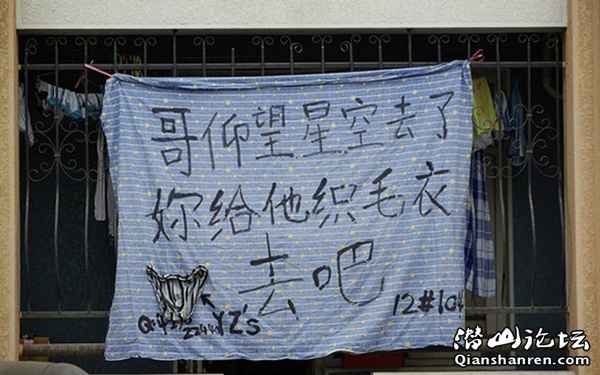 哥仰望星空去了
妳给他织毛衣
去吧
YZ's
12#104
潜山论坛
Qianshanren.com